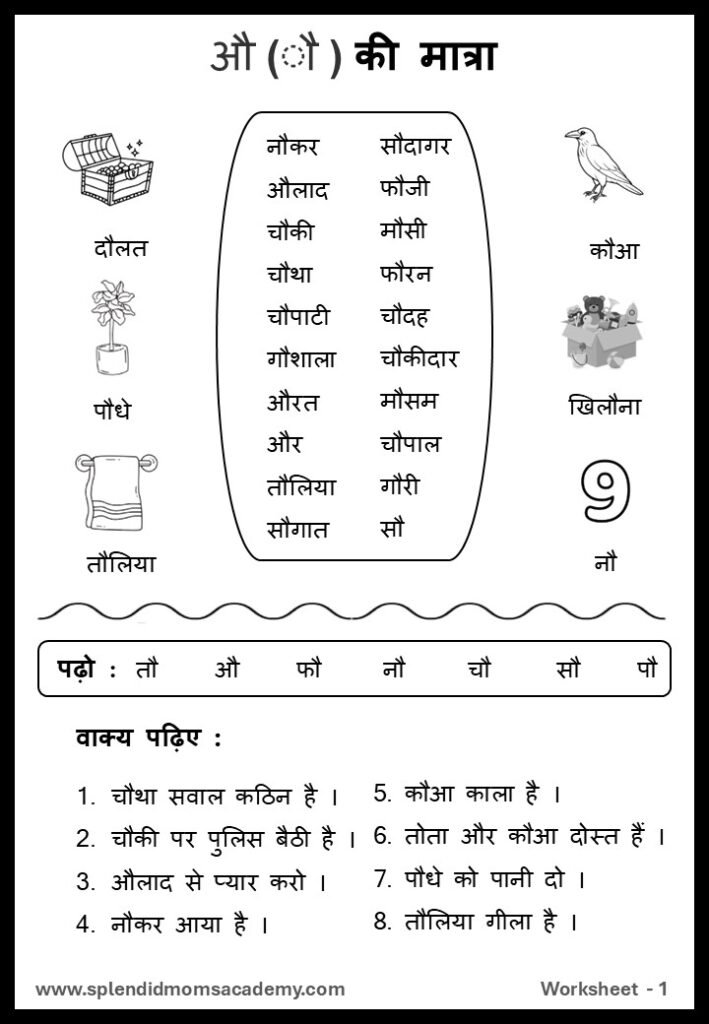 औ (ौ) की मात्रा
नौकर सौदागर
औलाद फौजी
चौकी मौसी
चौथा फौरन
चौपाटी चौदह
गौशाला चौकीदार
औरत मौसम
और चौपाल
तौलिया गौरी
सौगात सौ
दौलत
पौधे
तौलिया
कौआ
खिलौना
9
नौ
पढ़ो : तौ औ फौ नौ चौ सौ पौ
वाक्य पढ़िए :
1. चौथा सवाल कठिन है ।
2. चौकी पर पुलिस बैठी है ।
3. औलाद से प्यार करो ।
4. नौकर आया है ।
5. कौआ काला है ।
6. तोता और कौआ दोस्त हैं ।
7. पौधे को पानी दो ।
8. तौलिया गीला है ।
www.splendidmomsacademy.com
Worksheet - 1